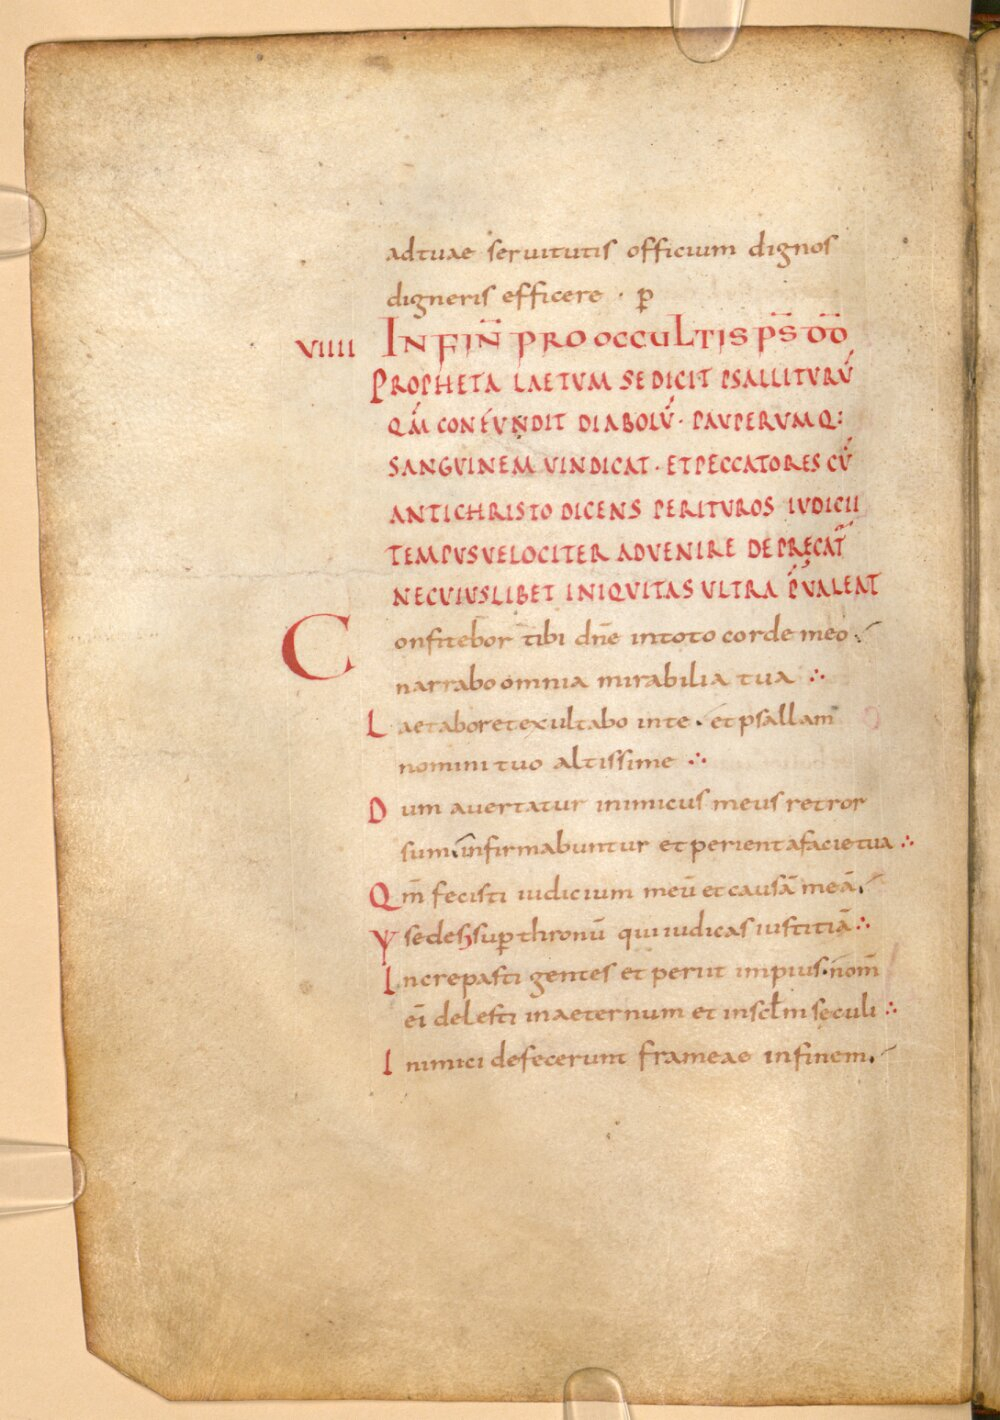 ad tuae seruitutis officium dignos
digneris efficere · p̄
VIIII IN FIN̄ PRO OCCULTIS PS̄ DD̄
PROPHETA LAETUM SE DICIT PSALLITURŪ
QM̄ CONFUNDIT DIABOLŪ · PAUPERUMQ:
SANGUINEM UINDICAT · ET PECCATORES CŪ
ANTICHRISTO DICENS PERITUROS IUDICII
TEMPUS UELOCITER ADUENIRE DEPRĘCAT̄
NE CUIUSLIBET INIQUITAS ULTRA P̄UALEAT
Confitebor tibi dn̄e in toto corde meo
narrabo omnia mirabilia tua ∴
Laetabor et exultabo in te · et psallam
nomini tuo altissime ∴
Dum auertatur inimicus meus retror
sum infirmabuntur et perient a facie tua ∴
Qm̄ fecisti iudicium meū et causā meā
sedes sup̄ thronū qui iudicas iustitiā ∴
Increpasti gentes et periit impius · nom̄
eī delesti in aeternum et in sc̄lm seculi ∴
Inimici defecerunt frameae in finem